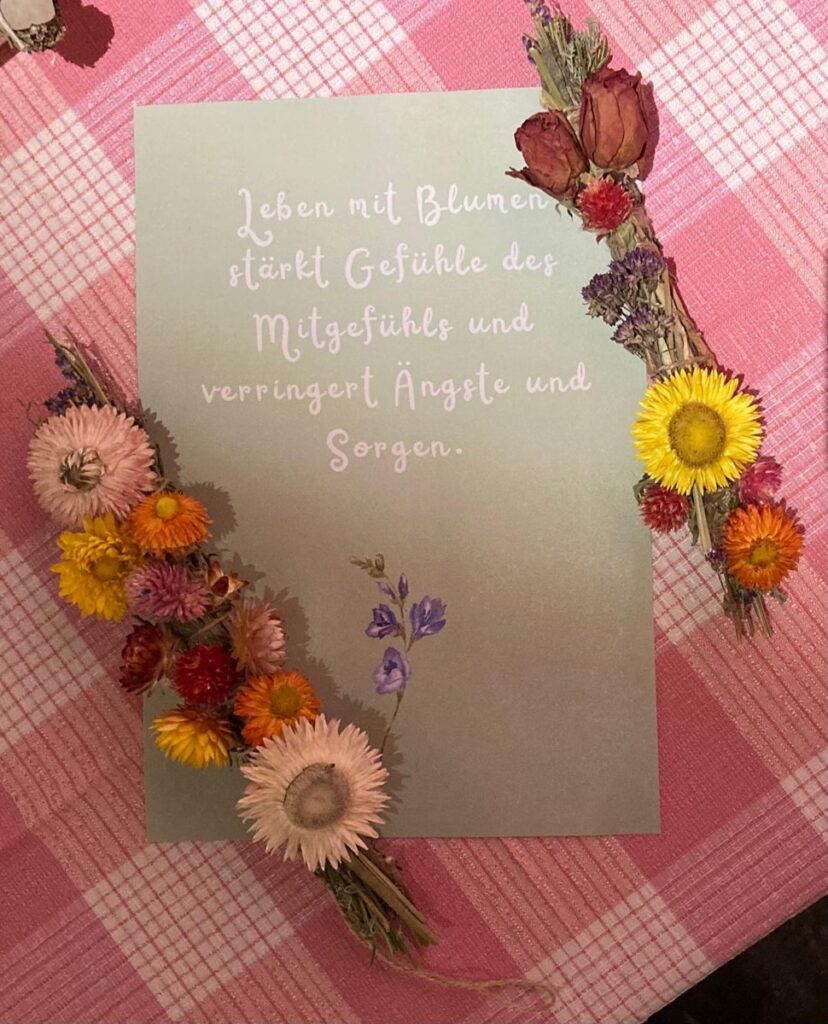 Leben mit Blumen
stärkt Gefühle des
Mitgefühls und
verringert Ängste und
Sorgen.